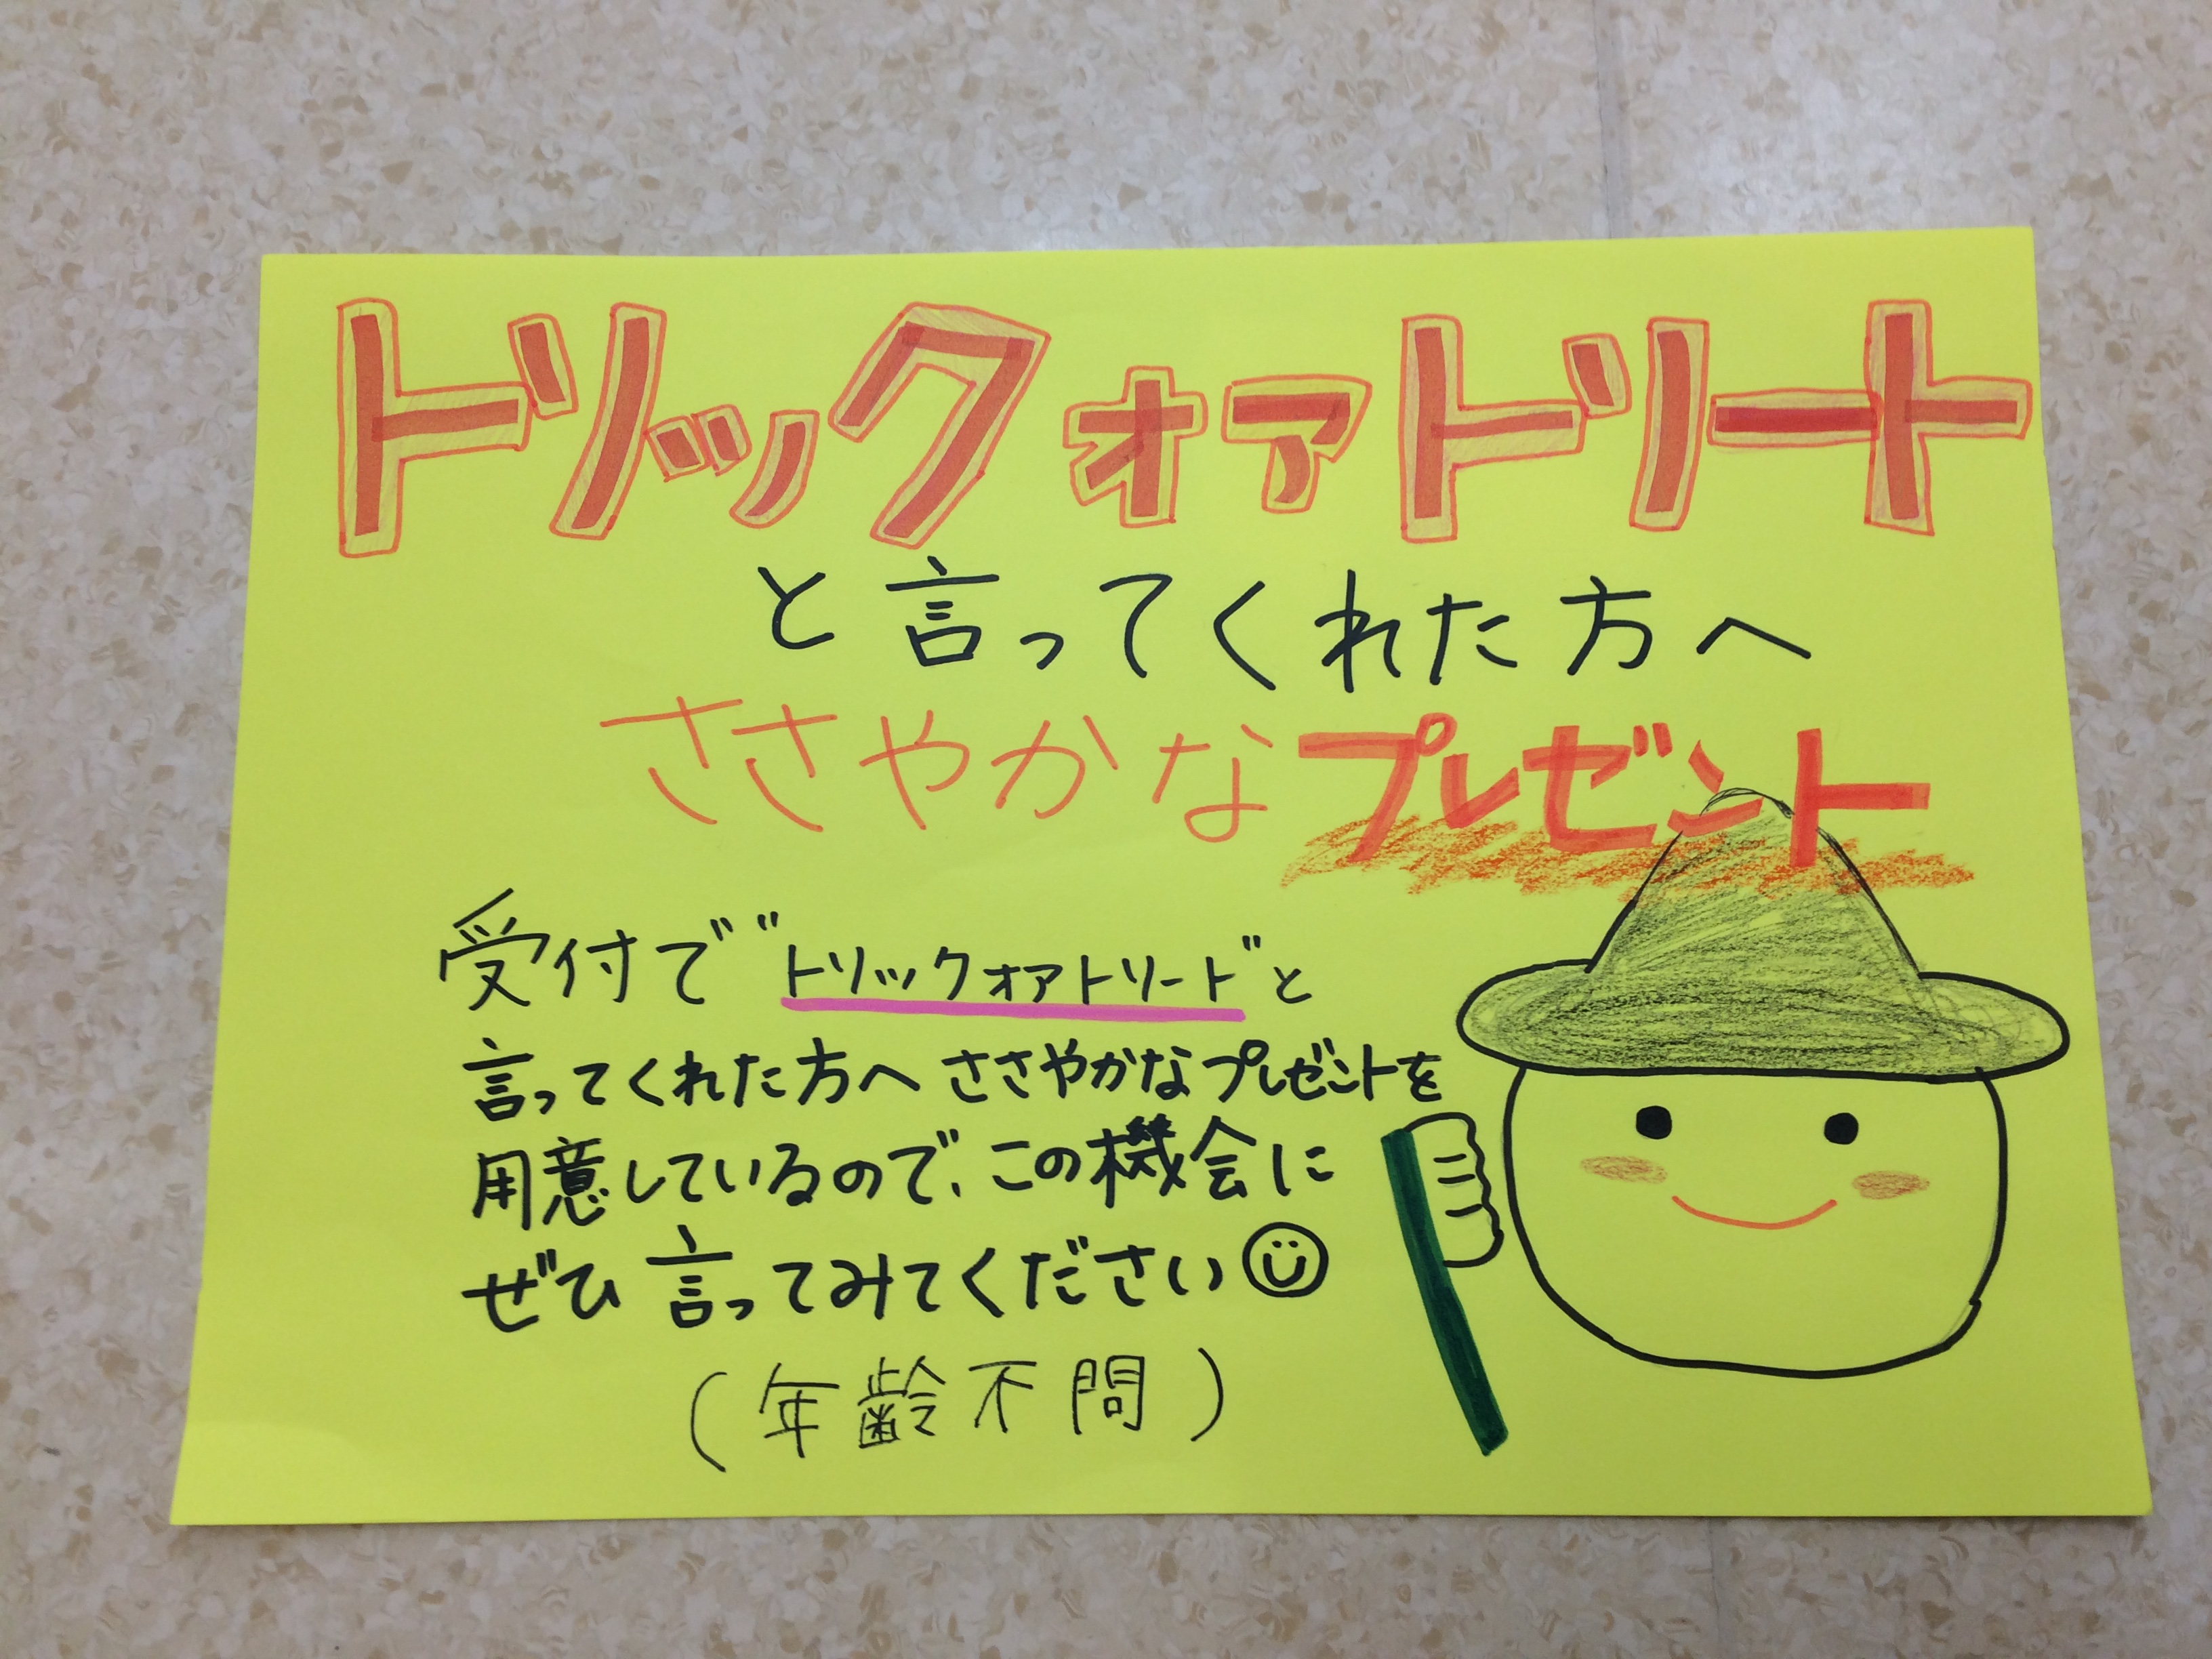 トリックォアトリート
と言ってくれた方へ
ささやかなプレゼント
受付で"トリックォアトリート"と
言ってくれた方へ ささやかなプレゼントを
用意しているので、この機会に
ぜひ 言ってみてください
(年齢不問)